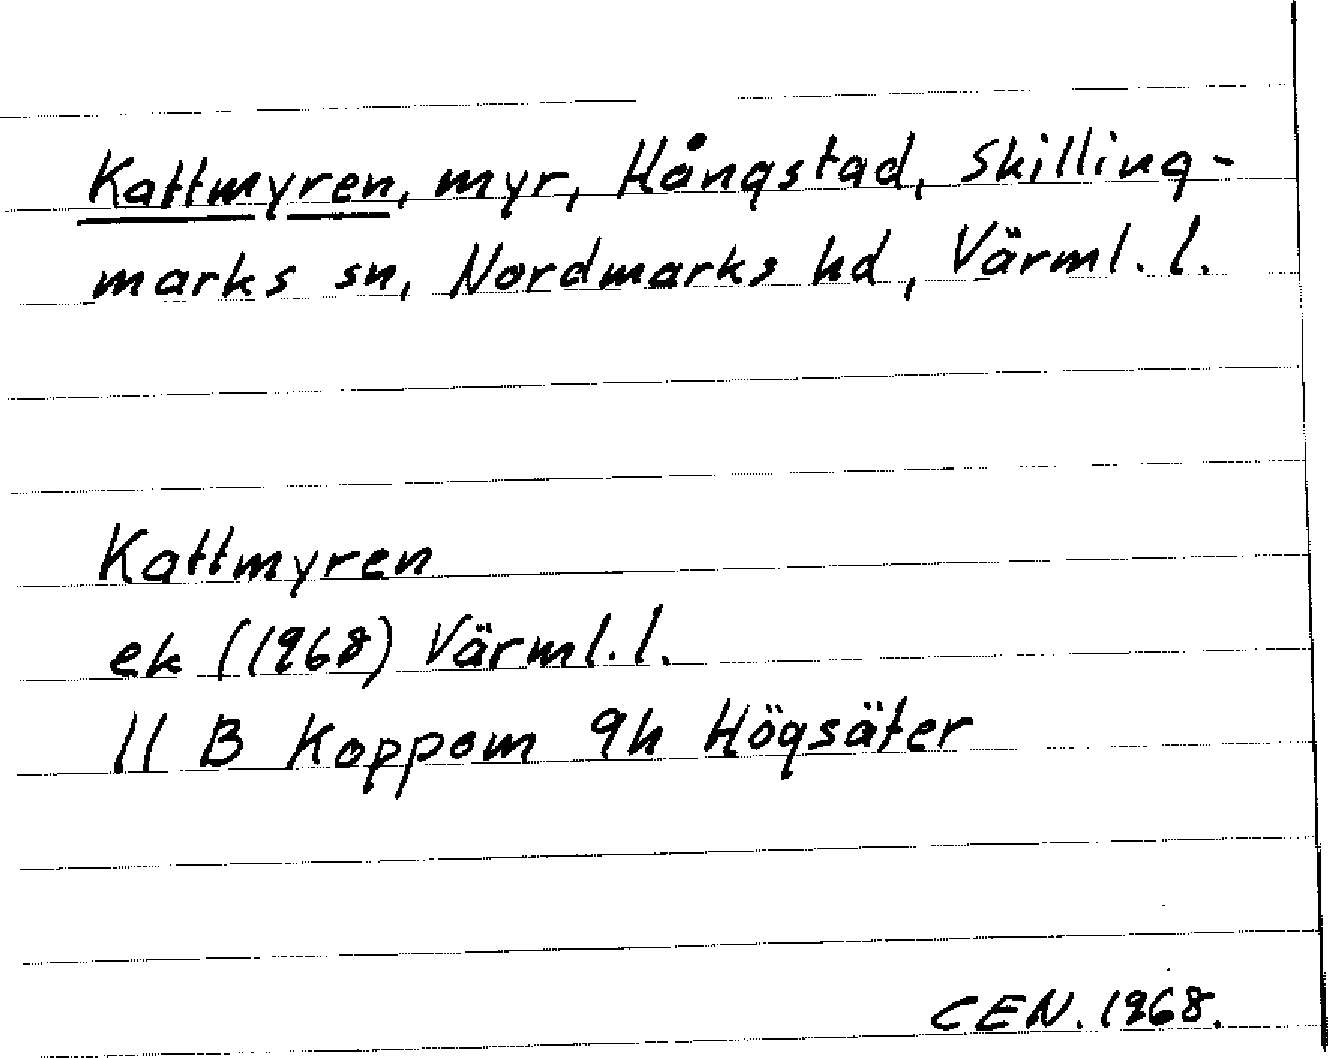 Kattmyren, myr, Hångstad, Skilling-
marks sn, Nordmarks hd, Värml. l.
Kattmyren
ek (1968) Värml. l.
11 B Koppom 9h Högsäter
CEN. 1968.